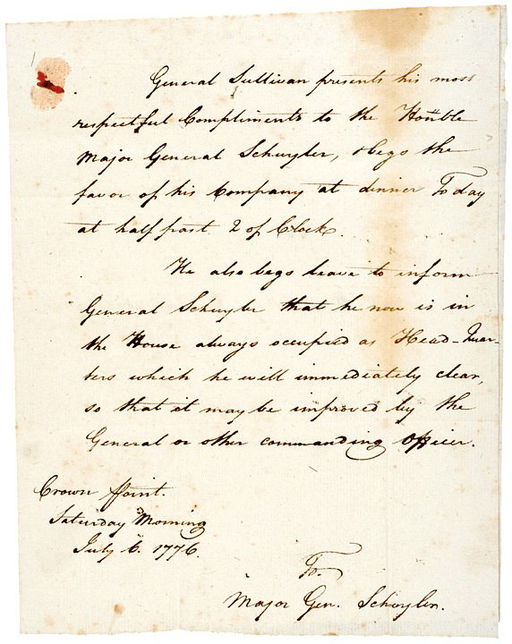 General Sullivan presents his most
respectful Compliments to the Hon̄ble
Major General Schuyler, & begs the
favor of his Company at dinner To day
at half past 2 of Clock.
He also begs leave to inform
General Schuyler that he now is in
the House always occupied as Head-Quar-
ters which he will immediately clear,
so that it may be improved by the
General or other commanding Officer.
Crown Point.
Saturday Morning
July 6. 1776.
To.
Major Gen. Schuyler.